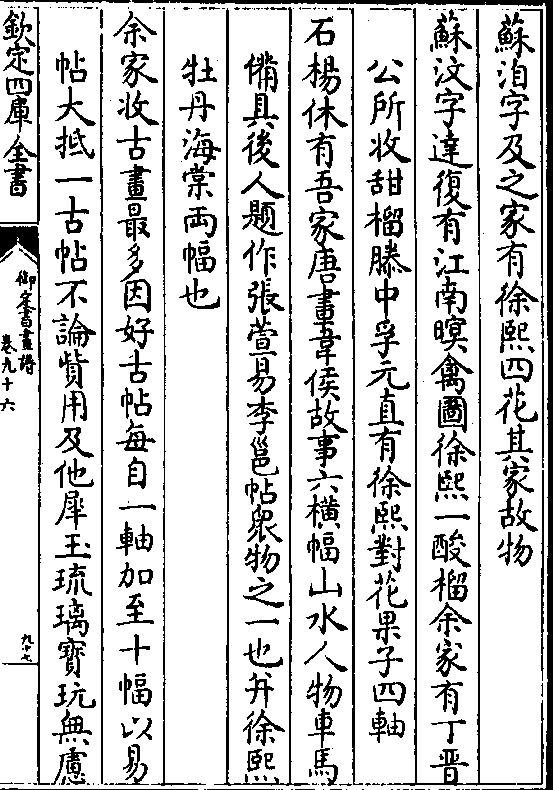 蘇洎字及之家有徐熙四花其家故物
蘇汶字達復有江南暝禽圖徐熙一酸榴余家有丁晋
公所收甜榴滕中孚元直有徐熙對花果子四軸
石楊休有吾家唐畫韋侯故事六橫幅山水人物車馬
備具後人題作張萱易李邕帖衆物之一也并徐熙
牡丹海棠兩幅也
余家收古畫最多因好古帖每自一軸加至十幅以易
帖大抵一古帖不論貲用及他犀玉琉璃寶玩無慮
欽定四庫全書
御定書畫譜
卷九十六
九十七